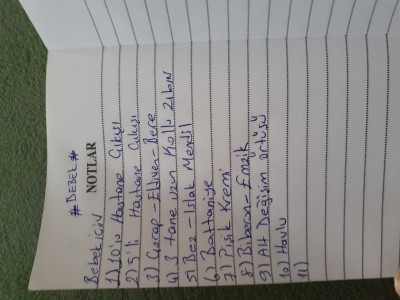 # BEBEK #
NOTLAR
Bebek için
1) 10'lu Hastane Çıkışı
2) 5'li Hastane Çıkışı
3) Çorap - Eldiven - Bere
4) 3 tane uzun Kollu Zıbın
5) Bez - Islak Mendil
6) Battaniye
7) Pişik Kremi
8) Biberon - Emzik
9) Alt Değişim örtüsü
10) Havlu
11)